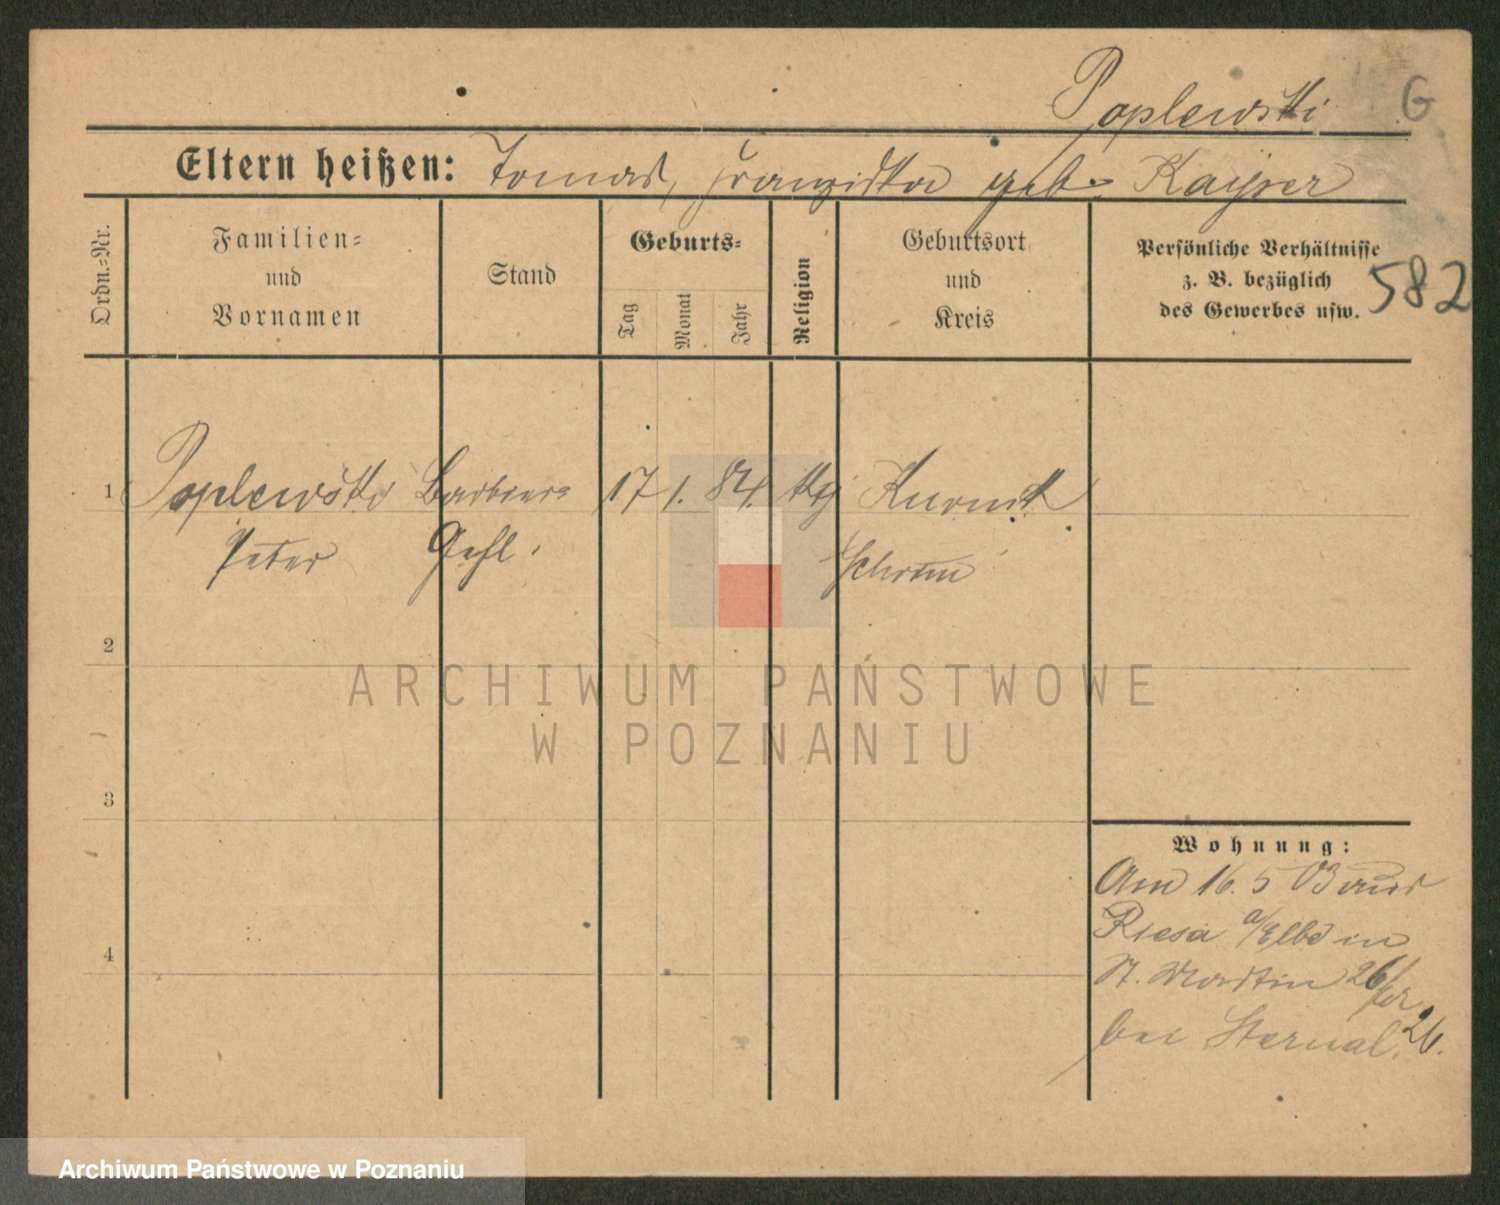 Poplewski G
Eltern heißen: Tomas, Franziska geb. Kayser
Ordn.-Nr.
Familien-
und
Vornamen
Stand
Geburts-
Tag
Monat
Jahr
Religion
Geburtsort
und
Kreis
Persönliche Verhältnisse
z. B. bezüglich
des Gewerbes usw.
582
1 Poplewski Barbier- 17 1. 84. ktg Kurnik
Peter Gehl. Schrim
2
3
4
Wohnung:
Am 16. 5
Riesa a/Elbe in
St. Martin 26
bei Sternal. 26.
ARCHIWUM PAŃSTWOWE
W POZNANIU
Archiwum Państwowe w Poznaniu